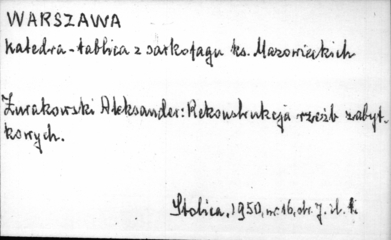 WARSZAWA
Katedra - tablica z sarkofagu ks. Mazowieckich
Żurakowski Aleksander: Rekonstrukcja rzeźb zabyt-
kowych.
Stolica, 1950, nr. 16, str. 7. il. k